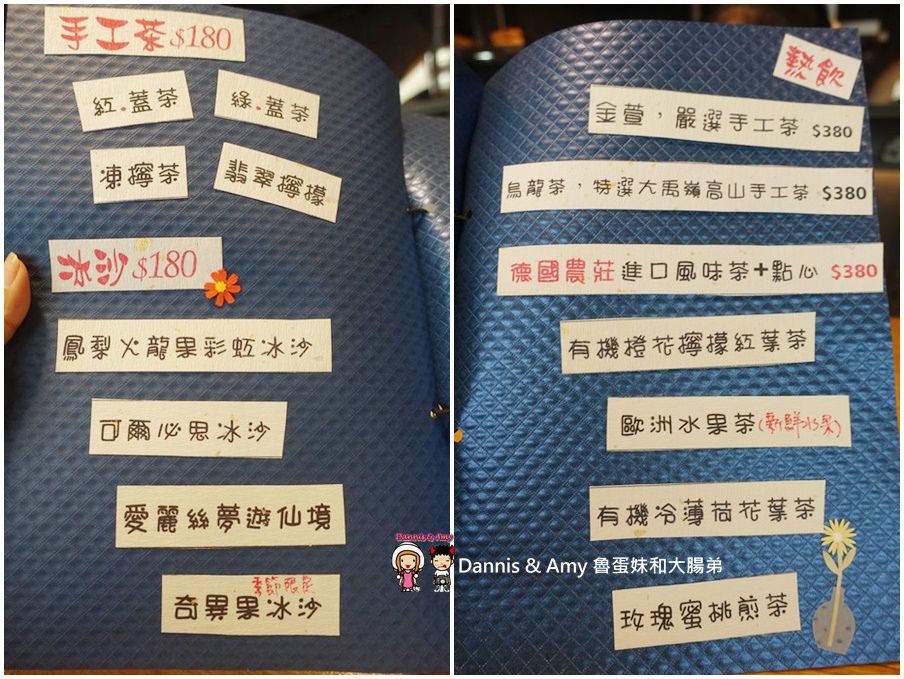 手工茶 $180
紅.蓋茶
綠.蓋茶
凍檸茶
翡翠檸檬
冰沙 $180
鳳梨火龍果彩虹冰沙
可爾必思冰沙
愛麗絲夢遊仙境
季節限定
奇異果冰沙
Dannis & Amy
熱飲
金萱，嚴選手工茶 $380
烏龍茶，特選大禹嶺高山手工茶 $380
德國農莊進口風味茶+點心 $380
有機橙花檸檬紅葉茶
歐洲水果茶(新鮮水果)
有機冷薄荷花葉茶
Dannis & Amy 魯蛋妹和大腸弟
玫瑰蜜桃煎茶